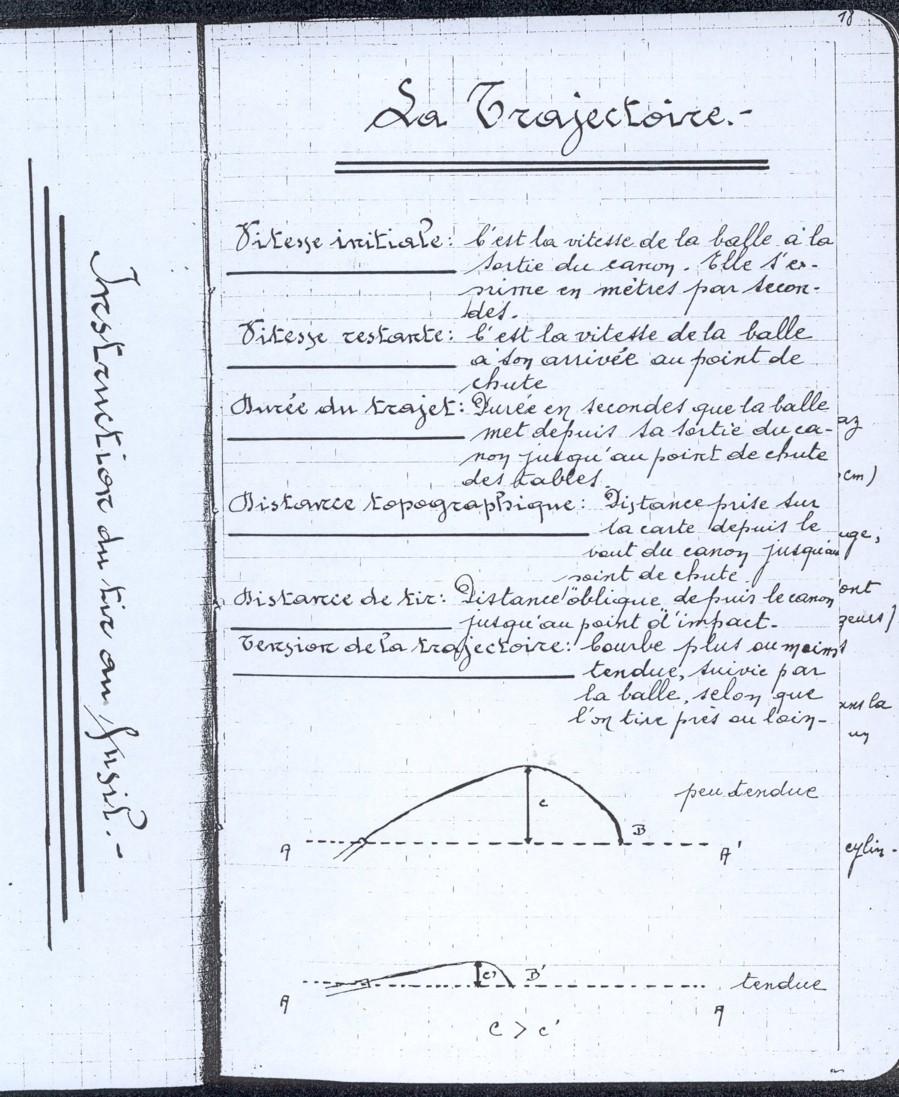 18
Instruction du tir au fusil.-
La Trajectoire.-
Vitesse initiale: C'est la vitesse de la balle à la
sortie du canon. Elle s'ex-
prime en mètres par secon-
des.
Vitesse restante: C'est la vitesse de la balle
à son arrivée au point de
chute
Durée du trajet: Durée en secondes que la balle
met depuis sa sortie du ca-
non jusqu'au point de chute
des tables.
Distance topographique: Distance prise sur
la carte depuis le
bout du canon jusqu'au
point de chute.
Distance de tir: Distance oblique depuis le canon
jusqu'au point d'impact.-
Tension de la trajectoire: Courbe plus ou moins
tendue, suivie par
la balle, selon que
l'on tire près ou loin-
az
cm)
uge,
ont
geurs)
ans la
un
cylin-
peu tendue
C
B
A
A'
C'
B'
tendue
A
A
C > C'